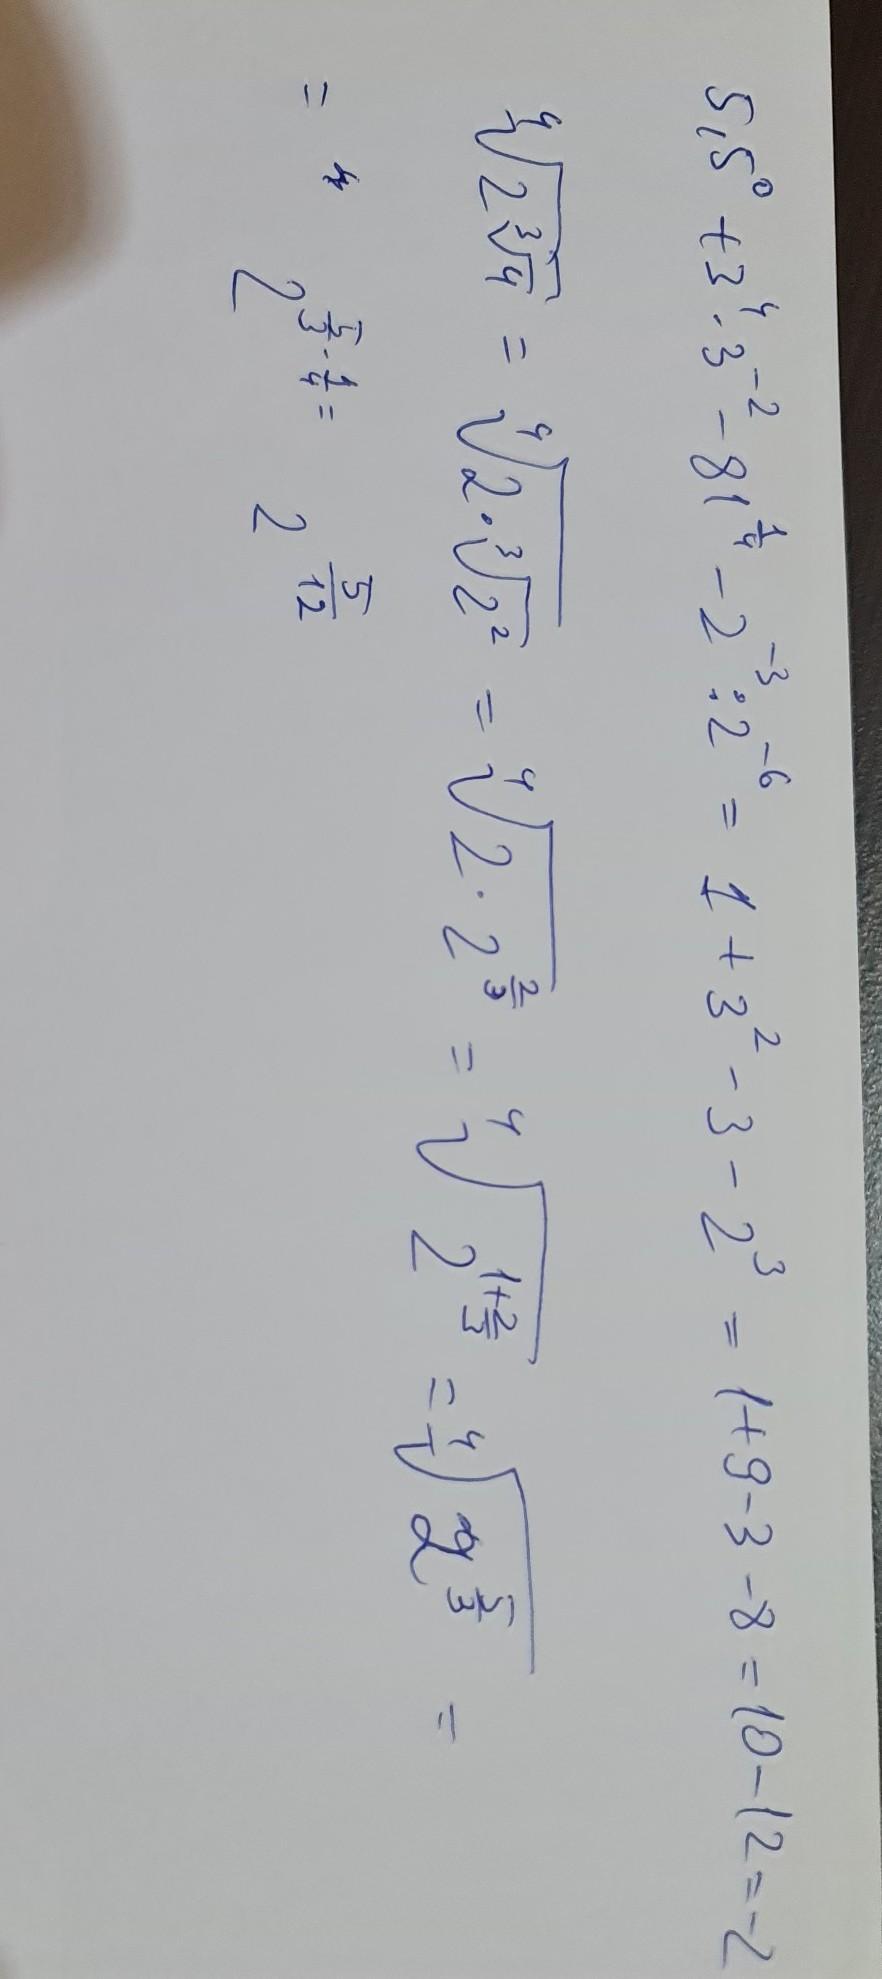 5,5⁰ + 3⁴ · 3⁻² − 81^{1/4} − 2⁻³ : 2⁻⁶ = 1 + 3² − 3 − 2³ = 1 + 9 − 3 − 8 = 10 − 12 = −2
∜(2∛4) = ∜(2 · ∛(2²)) = ∜(2 · 2^{2/3}) = ∜(2^{1+2/3}) = ∜(2^{5/3}) =
= 2^{5/3 · 1/4} = 2^{5/12}